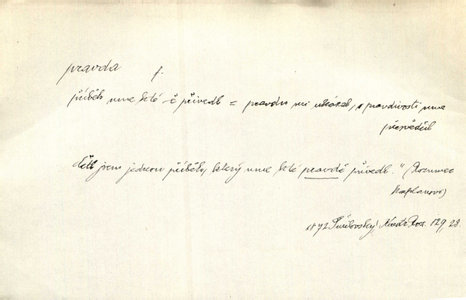 pravda f.
příběh mne k té - ě přivedl = pravdu mi ukázal, o pravdivosti mne
přesvědčil
četl jsem jednou příběh, který mne k té pravdě přivedl." (Rozumec
Kaplanovo)
1872 Šmilovský, Kmotr Roz. 129. 28.